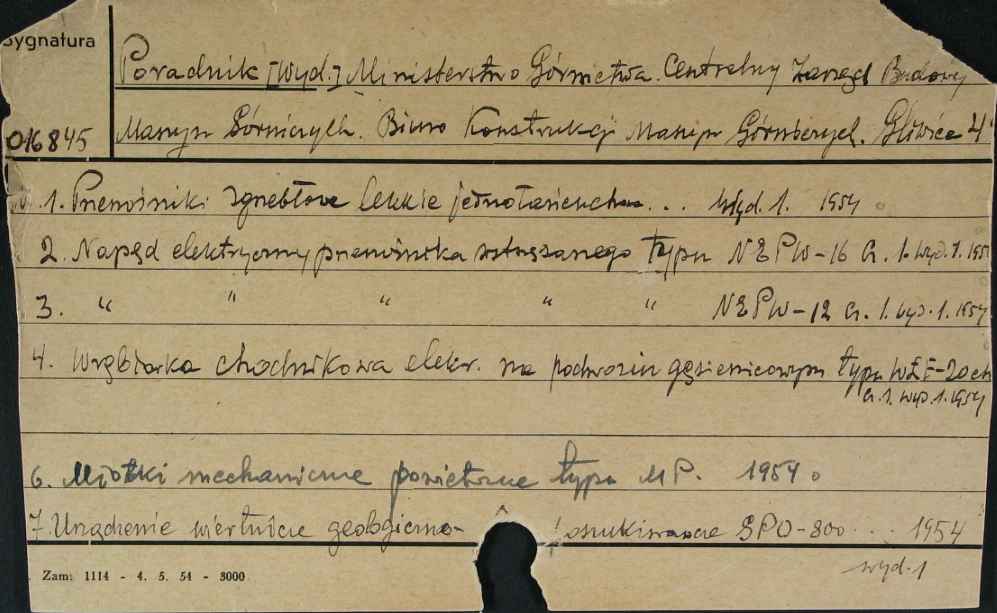 Sygnatura
Poradnik [Wyd.] Ministerstwo Górnictwa. Centralny Zarząd Budowy
016845 Maszyn Górniczych. Biuro Konstrukcji Maszyn Górniczych. Gliwice
1. Przenośniki zgrzebłowe lekkie jednołańcuchowe... Wyd. 1. 1954
2. Napęd elektryczny przenośnika wstrząsanego typu NEPW-16 Cz. 1. Wyd. 1. 1954
3. " " " " " NEPW-12 Cz. 1. Wyd. 1. 1954
4. Wrębiarka chodnikowa elektr. na podwoziu gąsienicowym typu
Cz. 1. Wyd. 1. 1954
6. Młotki mechaniczne powietrzne typu MP. 1954
7. Urządzenie wiertnicze geologiczno- poszukiwawcze GPO-800... 1954
wyd. 1
Zam: 1114 - 4. 5. 54 - 3000